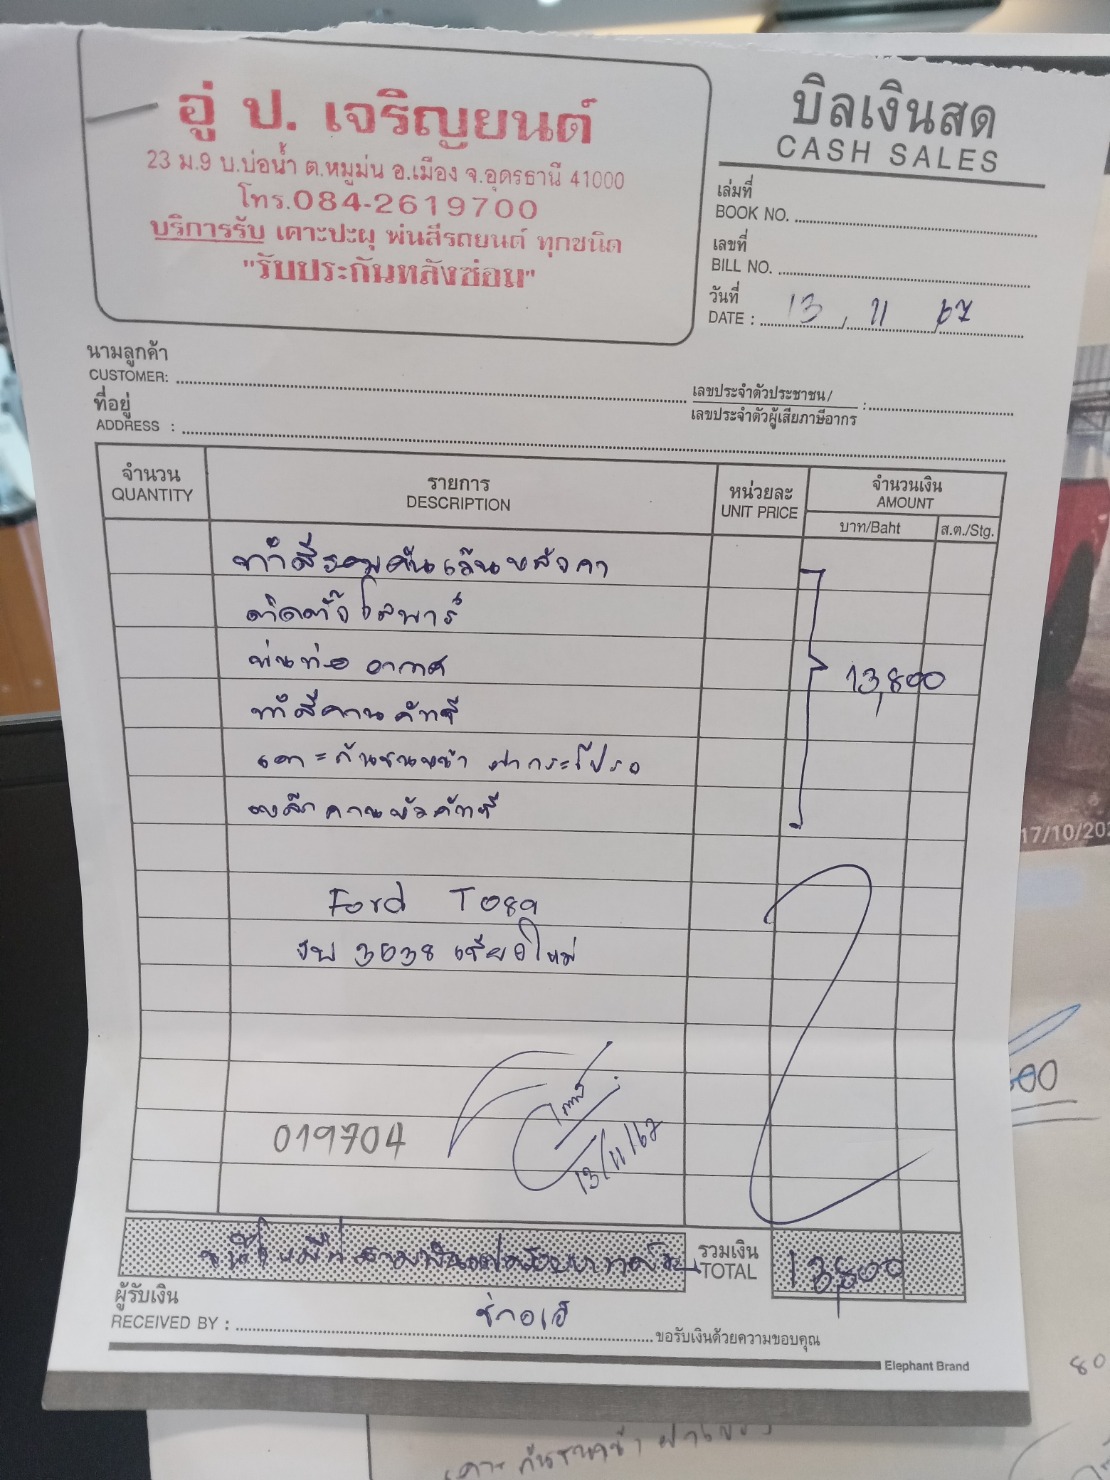 อู่ ป. เจริญยนต์
23 ม.9 บ.บ่อน้ำ ต.หมูม่น อ.เมือง จ.อุดรธานี 41000
โทร.084-2619700
บริการรับ เคาะปะผุ พ่นสีรถยนต์ ทุกชนิด
"รับประกันหลังซ่อม"
บิลเงินสด
CASH SALES
เล่มที่
BOOK NO.
เลขที่
BILL NO.
วันที่
DATE : 13 / 11 / 67
นามลูกค้า
CUSTOMER:
ที่อยู่
ADDRESS :
เลขประจำตัวประชาชน/
เลขประจำตัวผู้เสียภาษีอากร :
จำนวน
QUANTITY
รายการ
DESCRIPTION
หน่วยละ
UNIT PRICE
จำนวนเงิน
AMOUNT
บาท/Baht
ส.ต./Stg.
ทำสีรอบคันเว้นหลังคา
ติดตั้งโรบาร์
พ่นท่ออากาศ
13,800
ทำสีคานคัทซี
เคาะกันชนหน้า ฝากระโปรง
Ford
รูพ 3038 เชียงใหม่
019704
13/11/67
รวมเงิน
TOTAL
13,800
ผู้รับเงิน
RECEIVED BY :
ขอรับเงินด้วยความขอบคุณ
Elephant Brand
17/10/202
80